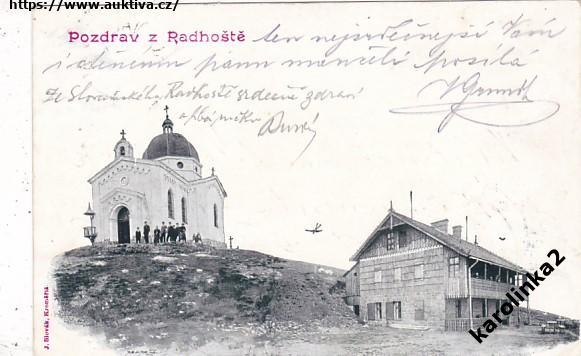 https://www.auktiva.cz/
Pozdrav z Radhoště ten nejsrdečnější Vám
i ctěnému panu manželi posílá
Ze Slovanského Radhoště srdečně zdraví
J. Slovák, Kroměříž
karolinka2